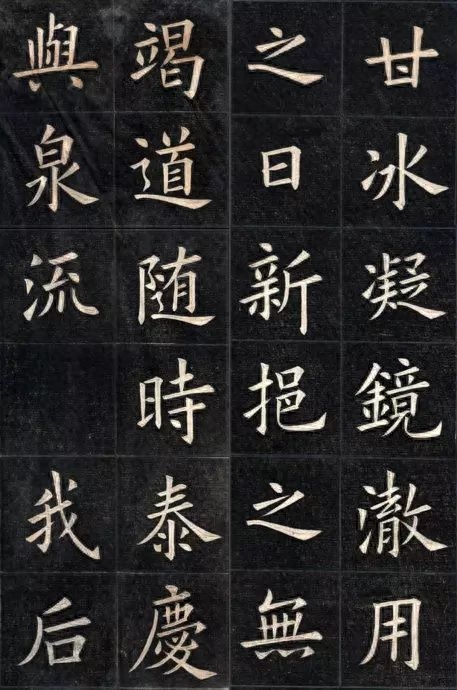 甘冰凝鏡澈用
之日新挹之無
竭道随時泰慶
與泉流我后